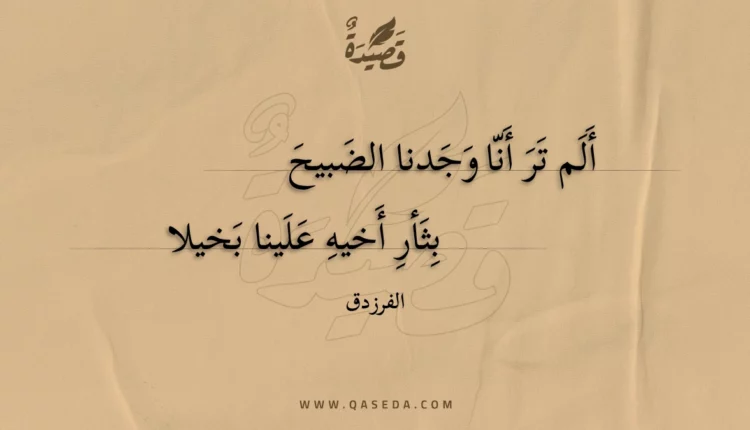 قَصِيدَةٌ
أَلَم تَرَ أَنّا وَجَدنا الضَبيحَ
بِثَأرِ أَخيهِ عَلَينا بَخيلا
الفرزدق
WWW.QASEDA.COM